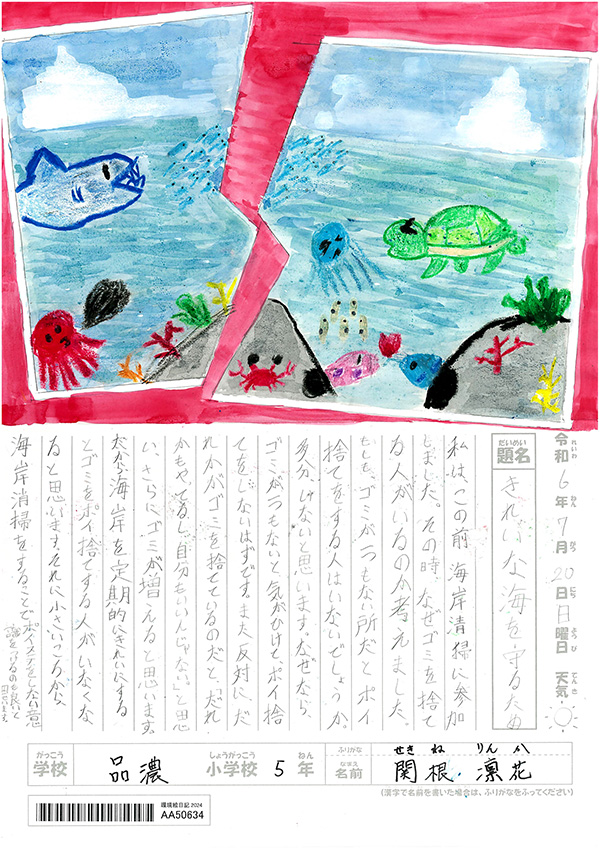 令和6年7月20日日曜日 天気
れいわ ねん がつ にち ようび てんき
だいめい
題名 きれいな海を守るため
私は、この前、海岸清掃に参加
しました。その時、なぜゴミを捨て
る人がいるのか考えました。
もしも、ゴミが一つもない所だとポイ
捨てをする人はいないでしょうか。
多分、しないと思います。なぜなら、
ゴミが一つもないと気がひけて、ポイ捨
てをしないはずです。また、反対に、だ
れかがゴミを捨てているのだと、「だれ
かもやってるし自分もいいんじゃない。」と思
い、さらに、ゴミが増えると思います。
だから海岸を定期的にきれいにする
とゴミをポイ捨てする人がいなくな
ると思います。それに小さいころから
海岸消掃をすることでポイステをしない意
識をつけるのも良いと
思います。
がっこう しょうがっこう ねん ふりがな せきね りんか
学校 品濃 小学校 5年 なまえ 名前 関根 凛花
(漢字で名前を書いた場合は、ふりがなをふってください)
環境絵日記2024
AA50634